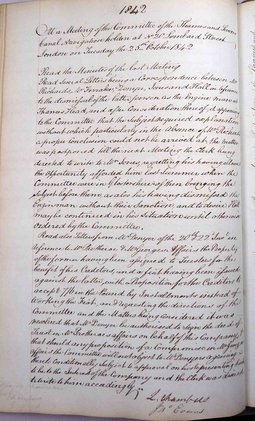 1842
At a Meeting of the Committee of the Thames and Severn
Canal Navigation holden at No 20 Lombard Street
London on Tuesday the 25 October 1842
Read the Minutes of the last Meeting
Read several Letters being a Correspondence between Mr
Richards, Mr Denyer, Jones and Hall as respects
to the dismissal of the latter person as the Engine man at
Thames Head, and after Consideration thereof it appeared
to the Committee that the Subject required explanation
without which particularly in the Absence of Mr Richards
a proper conclusion could not be arrived at the matter
was postponed till the next Meeting the Clerk being
directed to write to Mr Jones regretting his having allowed
the Opportunity afforded him last Summer when the
Committee were in Gloucestershire of then bringing the
Subject before them as also his having discharged the
Engineman without their Sanction and to desire Hall
may be continued in his Situation until otherwise
ordered by the Committee.
Read also Letters from Mr Denyer of the 20th & 22 Inst in
reference to Mr
of the former having been assigned to Trustees for the
benefit of his Creditors and a fiat having been issued
against the latter, with a Proposition for the Creditors to
accept from the Found by instalments instead of
working the Fiat, and requesting the directions of the
Committee and the Matters being Considered it was
resolved that Mr Denyer be authorized to sign the deed of
Trust in Mr affairs on behalf of this Company and
that should any proposition of a Compromise in Mr
affairs the Committee will not object to Mr Denyer's agreeing
thereto Conditionally, subject to approval on his reporting the
to the Solicitor of the Company and the Clerk was directed
to write to him accordingly
L Chambers
Jno Evans